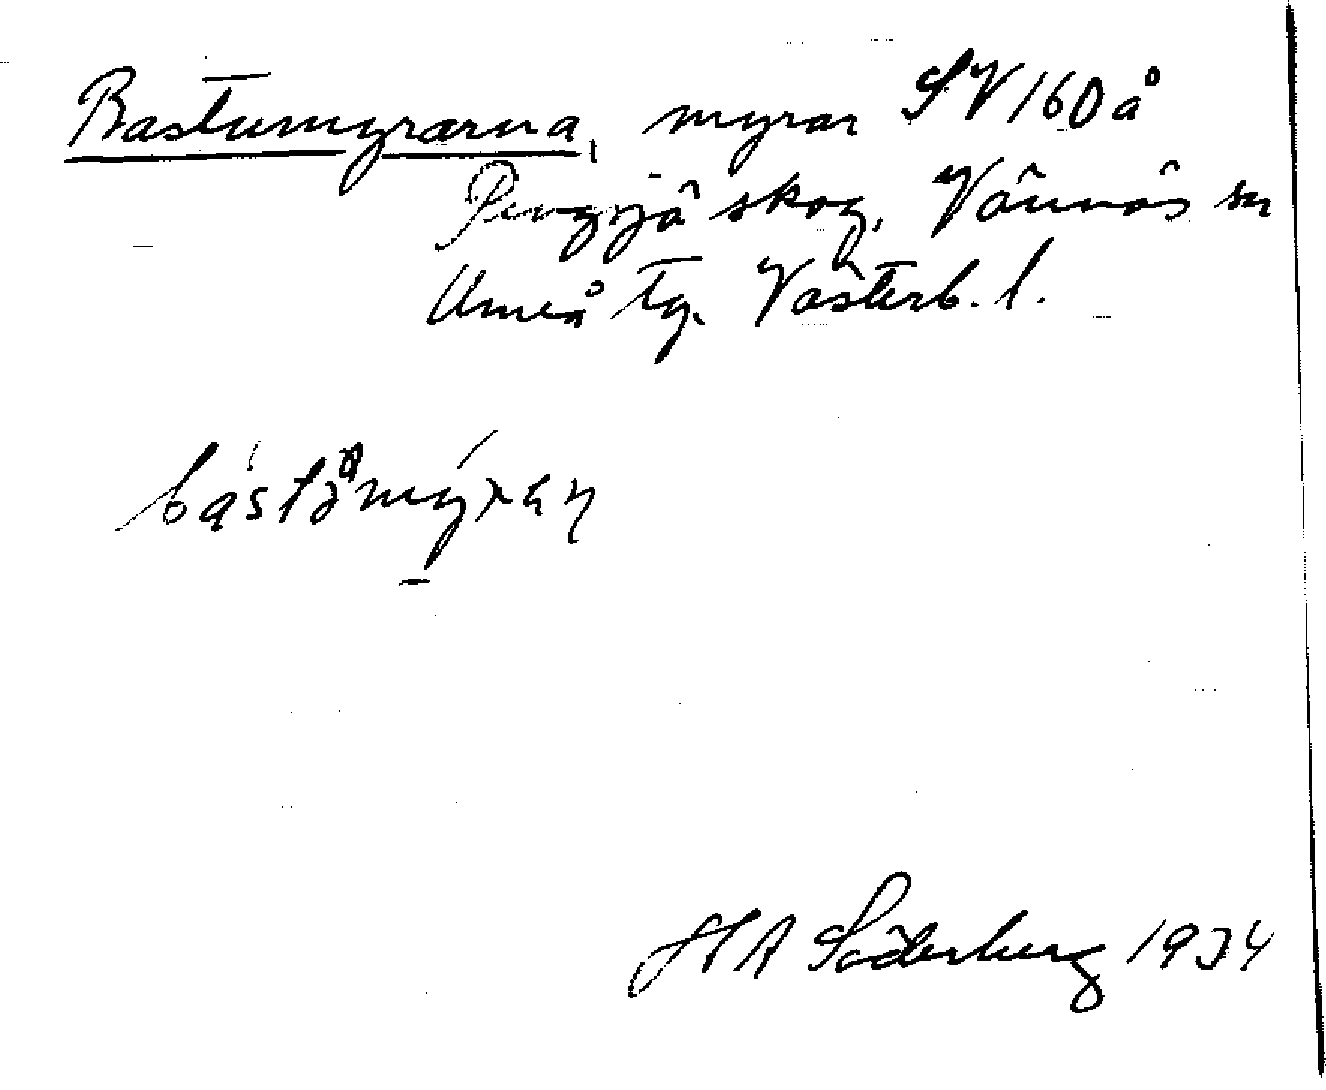 Bastumyrarna, myrar SV 160 å
Pengsjö skog, Vännäs sn
Umeå tg. Västerb. l.
HA Söderberg 1934